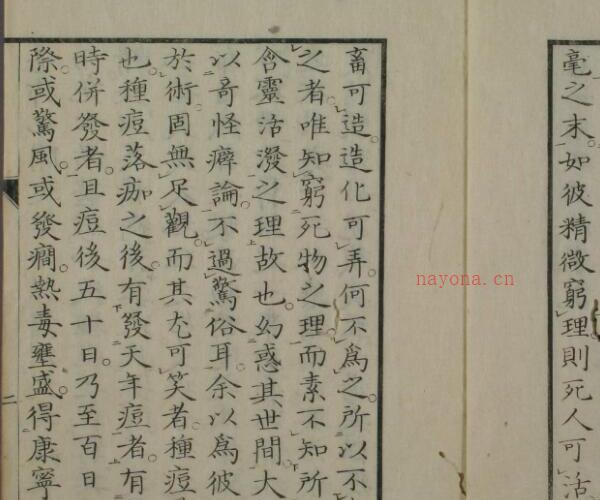 毫之末。如彼精微窮理則死人可活
畜可造。造化可弄。何不爲之。所以不
之者。唯知窮死物之理。而素不知所
含靈活潑之理故也。幻惑其世間大
以奇怪癖論。不過驚俗耳。余以爲彼
於術固無足觀。而其尤可笑者。種痘
也。種痘落痂之後。有發天年痘者。有
時併發者。且痘後五十日。乃至百日
際。或驚風。或發癇。熱毒壅盛。得康寧
二
nayona.cn